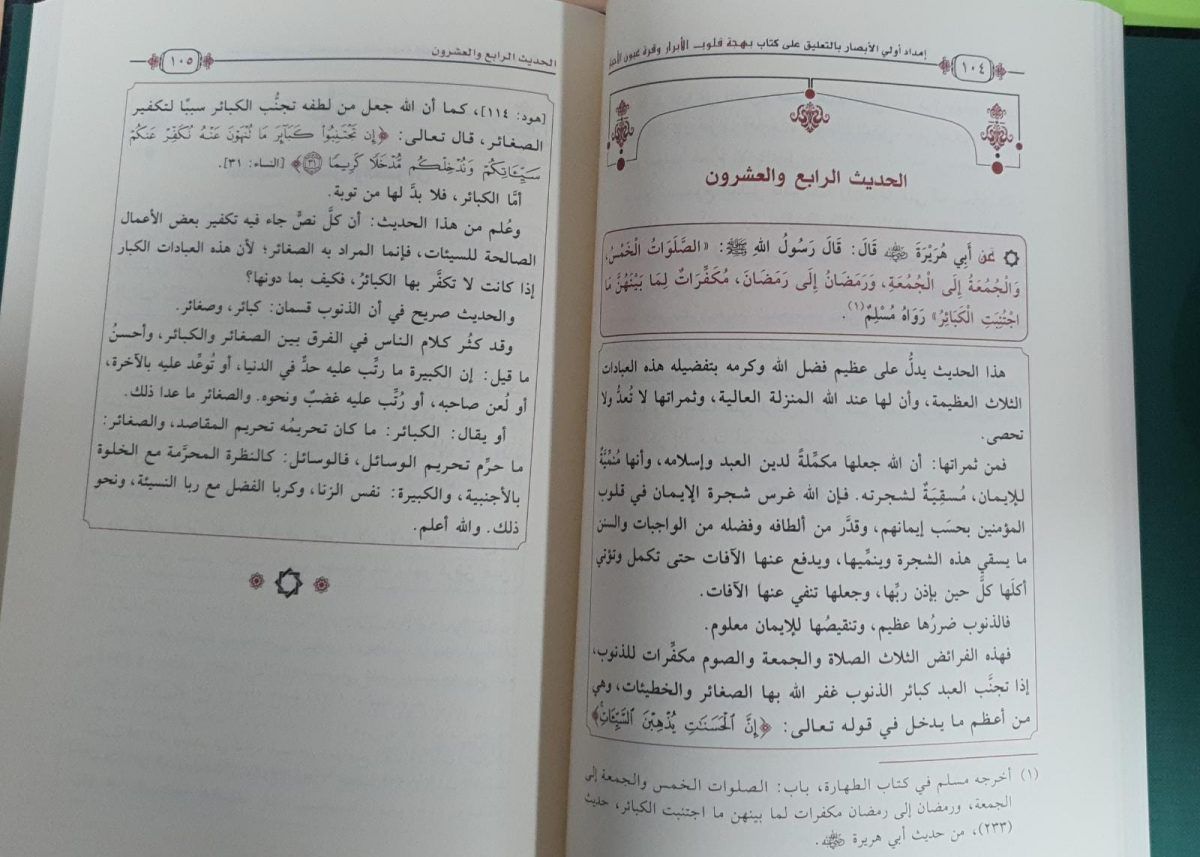 إمداد أولي الأبصار بالتعليق على كتاب بهجة قلوب الأبرار وقرة عيون الأخيار
١٠٤
الحديث الرابع والعشرون
عَنْ أَبِي هُرَيْرَةَ رضي الله عنه قَالَ: قَالَ رَسُولُ اللهِ ﷺ: «الصَّلَوَاتُ الْخَمْسُ،
وَالْجُمُعَةُ إِلَى الْجُمُعَةِ، وَرَمَضَانُ إِلَى رَمَضَانَ، مُكَفِّرَاتٌ لِمَا بَيْنَهُنَّ مَا
اجْتُنِبَتِ الْكَبَائِرُ» رَوَاهُ مُسْلِمٌ(١).
هذا الحديث يدلُّ على عظيم فضل الله وكرمه بتفضيله هذه العبادات
الثلاث العظيمة، وأن لها عند الله المنزلة العالية، وثمراتها لا تُعدُّ ولا
تحصى.
فمن ثمراتها: أن الله جعلها مكمِّلةً لدين العبد وإسلامه، وأنها مُنمِّيَةٌ
للإيمان، مُسقِيَةٌ لشجرته. فإن الله غرس شجرة الإيمان في قلوب
المؤمنين بحسَب إيمانهم، وقدَّر من ألطافه وفضله من الواجبات والسنن
ما يسقي هذه الشجرة وينمِّيها، ويدفع عنها الآفات حتى تكمل وتؤتي
أكلَها كلَّ حين بإذن ربِّها، وجعلها تنفي عنها الآفات.
فالذنوب ضررُها عظيم، وتنقيصُها للإيمان معلوم.
فهذه الفرائض الثلاث الصلاة والجمعة والصوم مكفِّرات للذنوب،
إذا تجنَّب العبد كبائر الذنوب غفر الله بها الصغائر والخطيئات، وهي
من أعظم ما يدخل في قوله تعالى: ﴿إِنَّ ٱلْحَسَنَٰتِ يُذْهِبْنَ ٱلسَّيِّـَٔاتِ﴾
(١) أخرجه مسلم في كتاب الطهارة، باب: الصلوات الخمس والجمعة إلى
الجمعة، ورمضان إلى رمضان مكفرات لما بينهن ما اجتنبت الكبائر، حديث
(٢٣٣)، من حديث أبي هريرة رضي الله عنه.
الحديث الرابع والعشرون
١٠٥
[هود: ١١٤]، كما أن الله جعل من لطفه تجنُّب الكبائر سببًا لتكفير
الصغائر، قال تعالى: ﴿إِن تَجْتَنِبُوا۟ كَبَآئِرَ مَا تُنْهَوْنَ عَنْهُ نُكَفِّرْ عَنكُمْ
سَيِّـَٔاتِكُمْ وَنُدْخِلْكُم مُّدْخَلًا كَرِيمًا ٣١﴾ [النساء: ٣١].
أمَّا الكبائر، فلا بدَّ لها من توبة.
وعُلم من هذا الحديث: أن كلَّ نصٍّ جاء فيه تكفير بعض الأعمال
الصالحة للسيئات، فإنما المراد به الصغائر؛ لأن هذه العبادات الكبار
إذا كانت لا تكفَّر بها الكبائرُ، فكيف بما دونها؟
والحديث صريح في أن الذنوب قسمان: كبائر، وصغائر.
وقد كثُر كلام الناس في الفرق بين الصغائر والكبائر، وأحسنُ
ما قيل: إن الكبيرة ما رتِّب عليه حدٌّ في الدنيا، أو تُوعِّد عليه بالآخرة،
أو لُعن صاحبه، أو رُتِّب عليه غضبٌ ونحوه. والصغائر ما عدا ذلك.
أو يقال: الكبائر: ما كان تحريمُه تحريم المقاصد، والصغائر:
ما حرِّم تحريم الوسائل، فالوسائل: كالنظرة المحرَّمة مع الخلوة
بالأجنبية، والكبيرة: نفس الزنا، وكربا الفضل مع ربا النسيئة، ونحو
ذلك. والله أعلم.